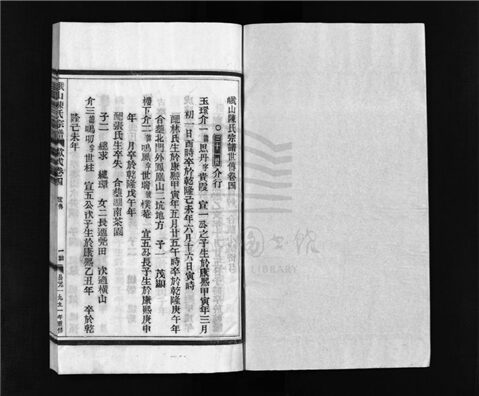 峨山陳氏宗譜世傳卷四
介行
玉環介一諱恩丹字貴霞 宣一公之子生於康熙甲寅年三月
初一日酉時卒於乾隆己未年六月十六日寅時
配林氏生於康熙甲寅年五月廿五午時卒於乾隆庚午年
合葬北門外鳳凰山三坑地方 子一 茂顯
樓下介二諱鳴鳳字世 號樸菴 宣五公長子生於康熙庚申
年 月卒於乾隆戊午年
配張氏生卒失 合葬湖南茶園
子二 繼求 繼環 女二長適堯田 次適橫山
介三諱鳴 字世柱 宣五公次子生於康熙乙丑年 卒於乾
隆己未年
峨山陳氏宗譜 卷四 世傳